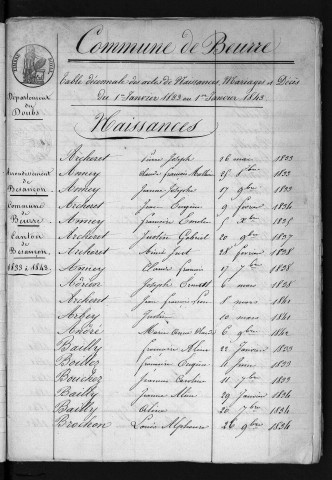 Commune de Beurre
Table décennale des actes de Naissances, Mariages et Décès
du 1er Janvier 1833 au 1er Janvier 1843
Département
du
Doubs
Arrondissement
de
Besançon
Commune
de
Beurre
Canton
de
Besançon
1833 à 1843
Naissances
Archeret Pierre Joseph 26 mars 1833
Anney Claude François 25 1833
Anney Jeanne 17 9bre 1833
Archeret Jean Eugène 9 février 1834
Anney Françoise 5 Xbre 1835
Archeret Justin Gabriel 20 9bre 1837
Archeret 28 février 1838
Anney Claude François 17 7bre 1838
Joseph Ernest 6 mars 1838
Archeret Jean François 8 mars 1841
Arbey Justin 10 mars 1841
André Marie 6 9bre 1842
Bailly Françoise Aline 22 Janvier 1833
Boillez Françoise Eugénie 4 Juin 1833
Bouchez Jeanne Caroline 11 7bre 1833
Bailly Jeanne Aline 29 Janvier 1834
Bailly Aline 20 7bre 1834
Brochon Louis Alphonse 26 9bre 1834